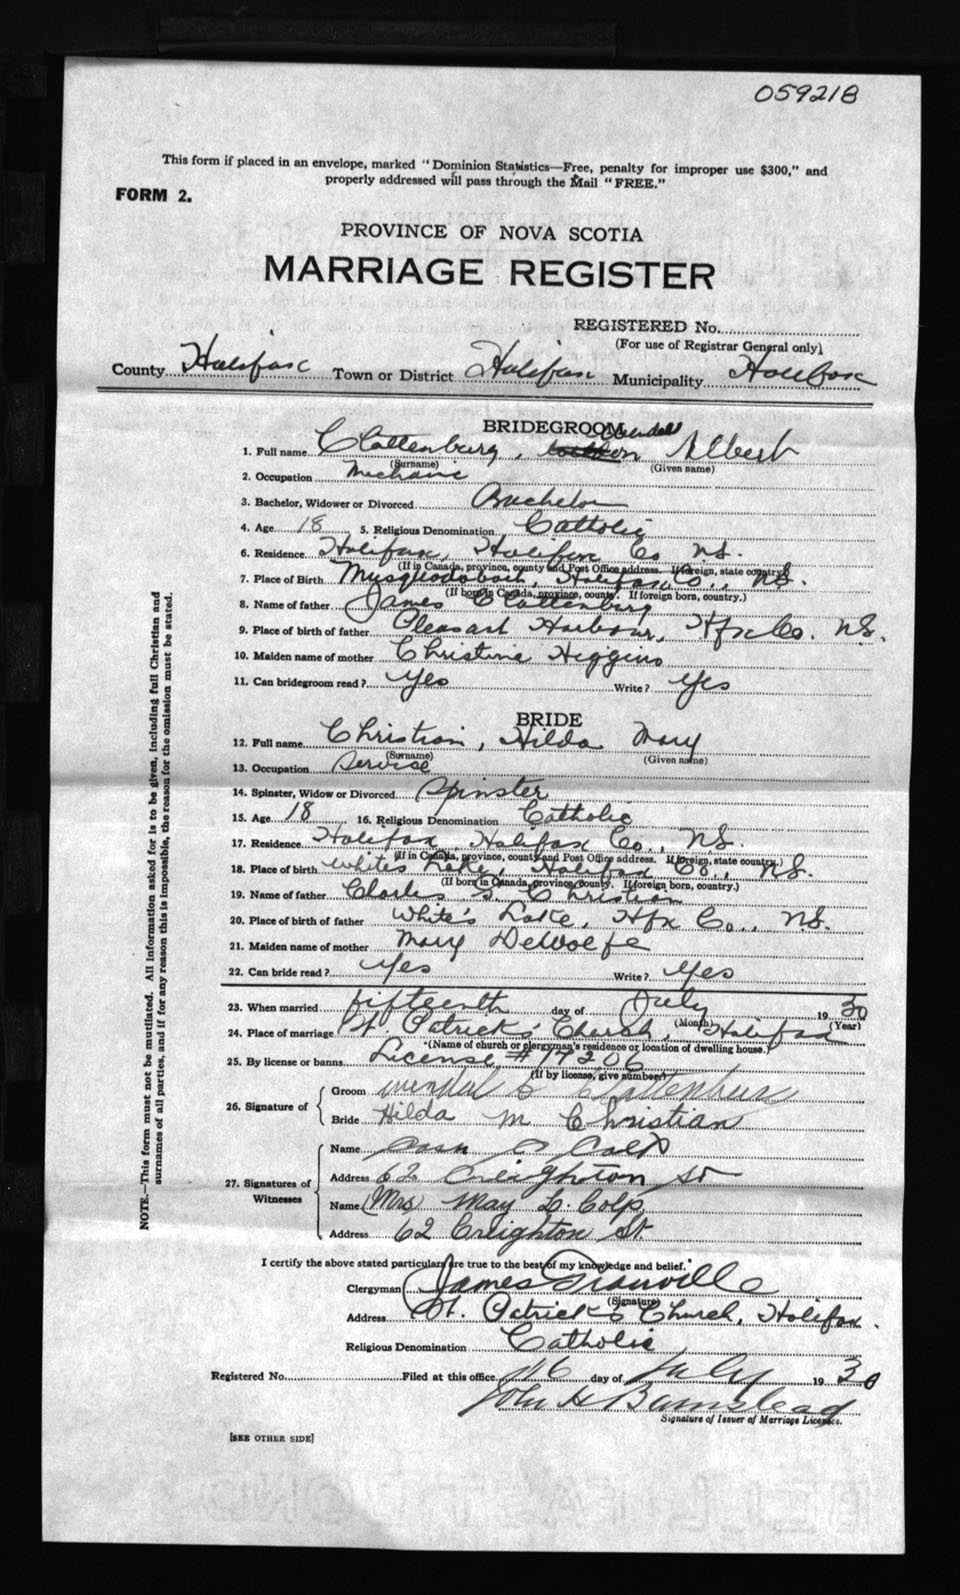 059218
This form if placed in an envelope, marked "Dominion Statistics—Free, penalty for improper use $300," and
properly addressed will pass through the Mail "FREE."
FORM 2.
PROVINCE OF NOVA SCOTIA
MARRIAGE REGISTER
REGISTERED No.
(For use of Registrar General only)
County Halifax Town or District Halifax Municipality Halifax
BRIDEGROOM
Wendell
1. Full name Clattenburg, Albert
(Surname) (Given name)
2. Occupation Mechanic
3. Bachelor, Widower or Divorced Bachelor
4. Age 18 5. Religious Denomination Catholic
6. Residence Halifax, Halifax Co N.S.
(If in Canada, province, county and Post Office address. If foreign, state country)
7. Place of Birth Musquodoboit, Halifax Co., N.S.
(If born in Canada, province, county. If foreign born, country.)
8. Name of father James Clattenburg
9. Place of birth of father Pleasant Harbour, Hfx Co. N.S.
10. Maiden name of mother Christine Higgins
11. Can bridegroom read? Yes Write? Yes
BRIDE
12. Full name Christian, Hilda Mary
(Surname) (Given name)
13. Occupation Service
14. Spinster, Widow or Divorced Spinster
15. Age 18 16. Religious Denomination Catholic
17. Residence Halifax, Halifax Co., N.S.
(If in Canada, province, county and Post Office address. If foreign, state country.)
18. Place of birth White's Lake, Halifax Co., N.S.
(If born in Canada, province, county. If foreign born, country.)
19. Name of father Charles S. Christian
20. Place of birth of father White's Lake, Hfx Co., N.S.
21. Maiden name of mother Mary DeWolfe
22. Can bride read? Yes Write? Yes
23. When married fifteenth day of July 1930
(Month) (Year)
24. Place of marriage St. Patrick's Church, Halifax
(Name of church or clergyman's residence or location of dwelling house.)
25. By license or banns License # 17206
(If by license, give number)
26. Signature of
Groom Wendel Clattenburg
Bride Hilda M Christian
27. Signatures of Witnesses
Name Colp
Address 62 Creighton St
Name (Mrs) May L. Colp
Address 62 Creighton St.
I certify the above stated particulars are true to the best of my knowledge and belief.
Clergyman James Granville
(Signature)
Address St. Patrick's Church, Halifax.
Religious Denomination Catholic
Registered No. Filed at this office 16 day of July 1930
John H Barnstead
Signature of Issuer of Marriage Licences.
[SEE OTHER SIDE]
NOTE.—This form must not be mutilated. All information asked for is to be given, including full Christian and
surnames of all parties, and if for any reason this is impossible, the reason for the omission must be stated.